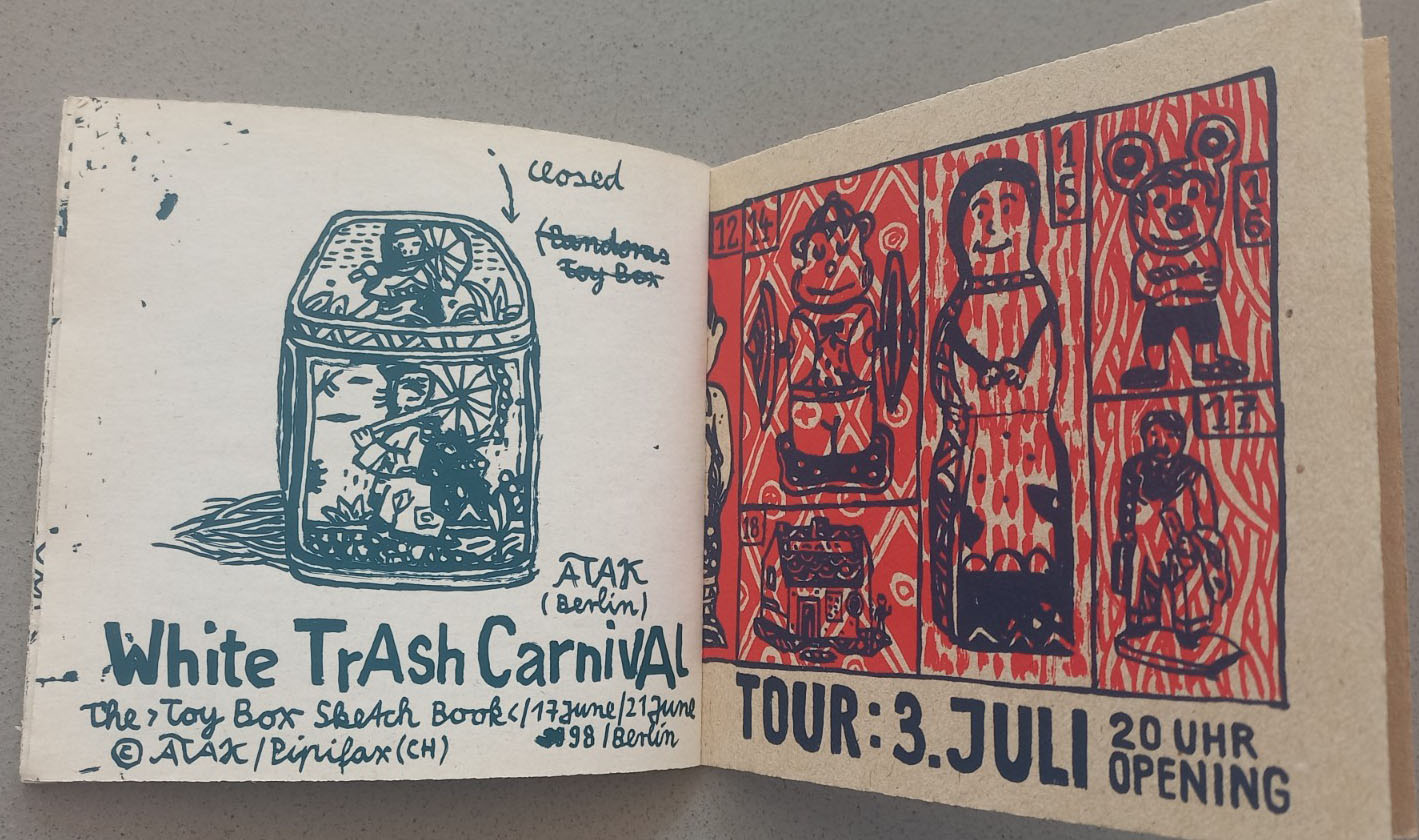 closed
(Pandoras
Toy Box
ATAK
(Berlin)
White TrAsh CarnivAl
The >Toy Box Sketch Book</17 June/21 June
98/Berlin
© ATAK/Pipifax (CH)
12
14
15
16
17
18
TOUR: 3. JULI
20 UHR
OPENING